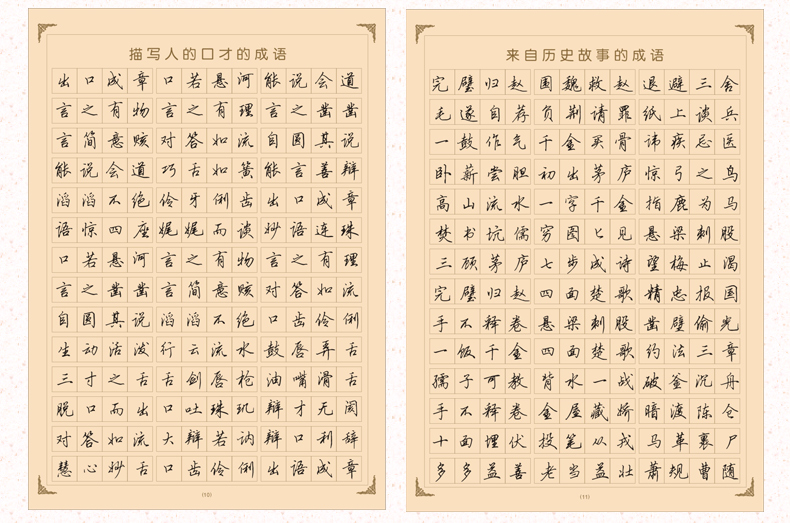 描写人的口才的成语
出口成章口若悬河能说会道
言之有物言之有理言之凿凿
言简意赅对答如流自圆其说
能说会道巧舌如簧能言善辩
滔滔不绝伶牙俐齿出口成章
语惊四座娓娓而谈妙语连珠
口若悬河言之有物言之有理
言之凿凿言简意赅对答如流
自圆其说滔滔不绝口齿伶俐
生动活泼行云流水鼓唇弄舌
三寸之舌舌剑唇枪油嘴滑舌
脱口而出口吐珠玑辩才无阂
对答如流大辩若讷口利辞
慧心妙舌口齿伶俐出语成章
(10)
来自历史故事的成语
完璧归赵围魏救赵退避三舍
毛遂自荐负荆请罪纸上谈兵
一鼓作气千金买骨讳疾忌医
卧薪尝胆初出茅庐惊弓之鸟
高山流水一字千金指鹿为马
焚书坑儒穷图匕见悬梁刺股
三顾茅庐七步成诗望梅止渴
完璧归赵四面楚歌精忠报国
手不释卷悬梁刺股凿壁偷光
一饭千金四面楚歌约法三章
孺子可教背水一战破釜沉舟
手不释卷金屋藏娇暗渡陈仓
十面埋伏投笔从戎马革裹尸
多多益善老当益壮萧规曹随
(11)